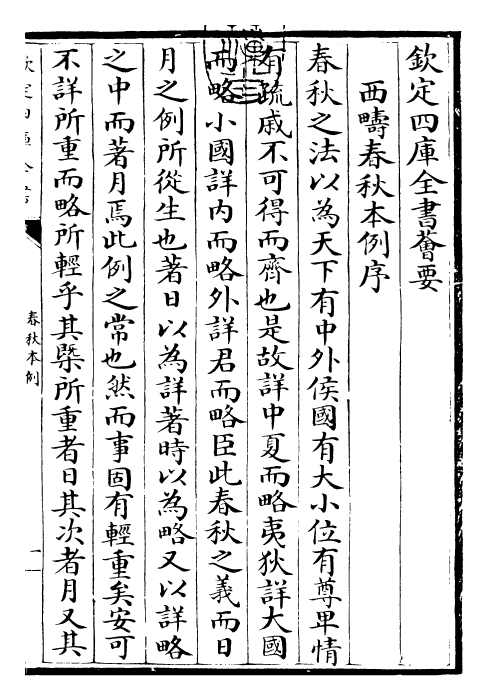 欽定四庫全書薈要
西疇春秋本例序
春秋之法以為天下有中外侯國有大小位有尊卑情
有疏戚不可得而齊也是故詳中夏而略夷狄詳大國
而略小國詳内而略外詳君而略臣此春秋之義而日
月之例所從生也著日以為詳著時以為略又以詳略
之中而著月焉此例之常也然而事固有輕重矣安可
不詳所重而略所輕乎其槩所重者日其次者月又其
春秋本例
一